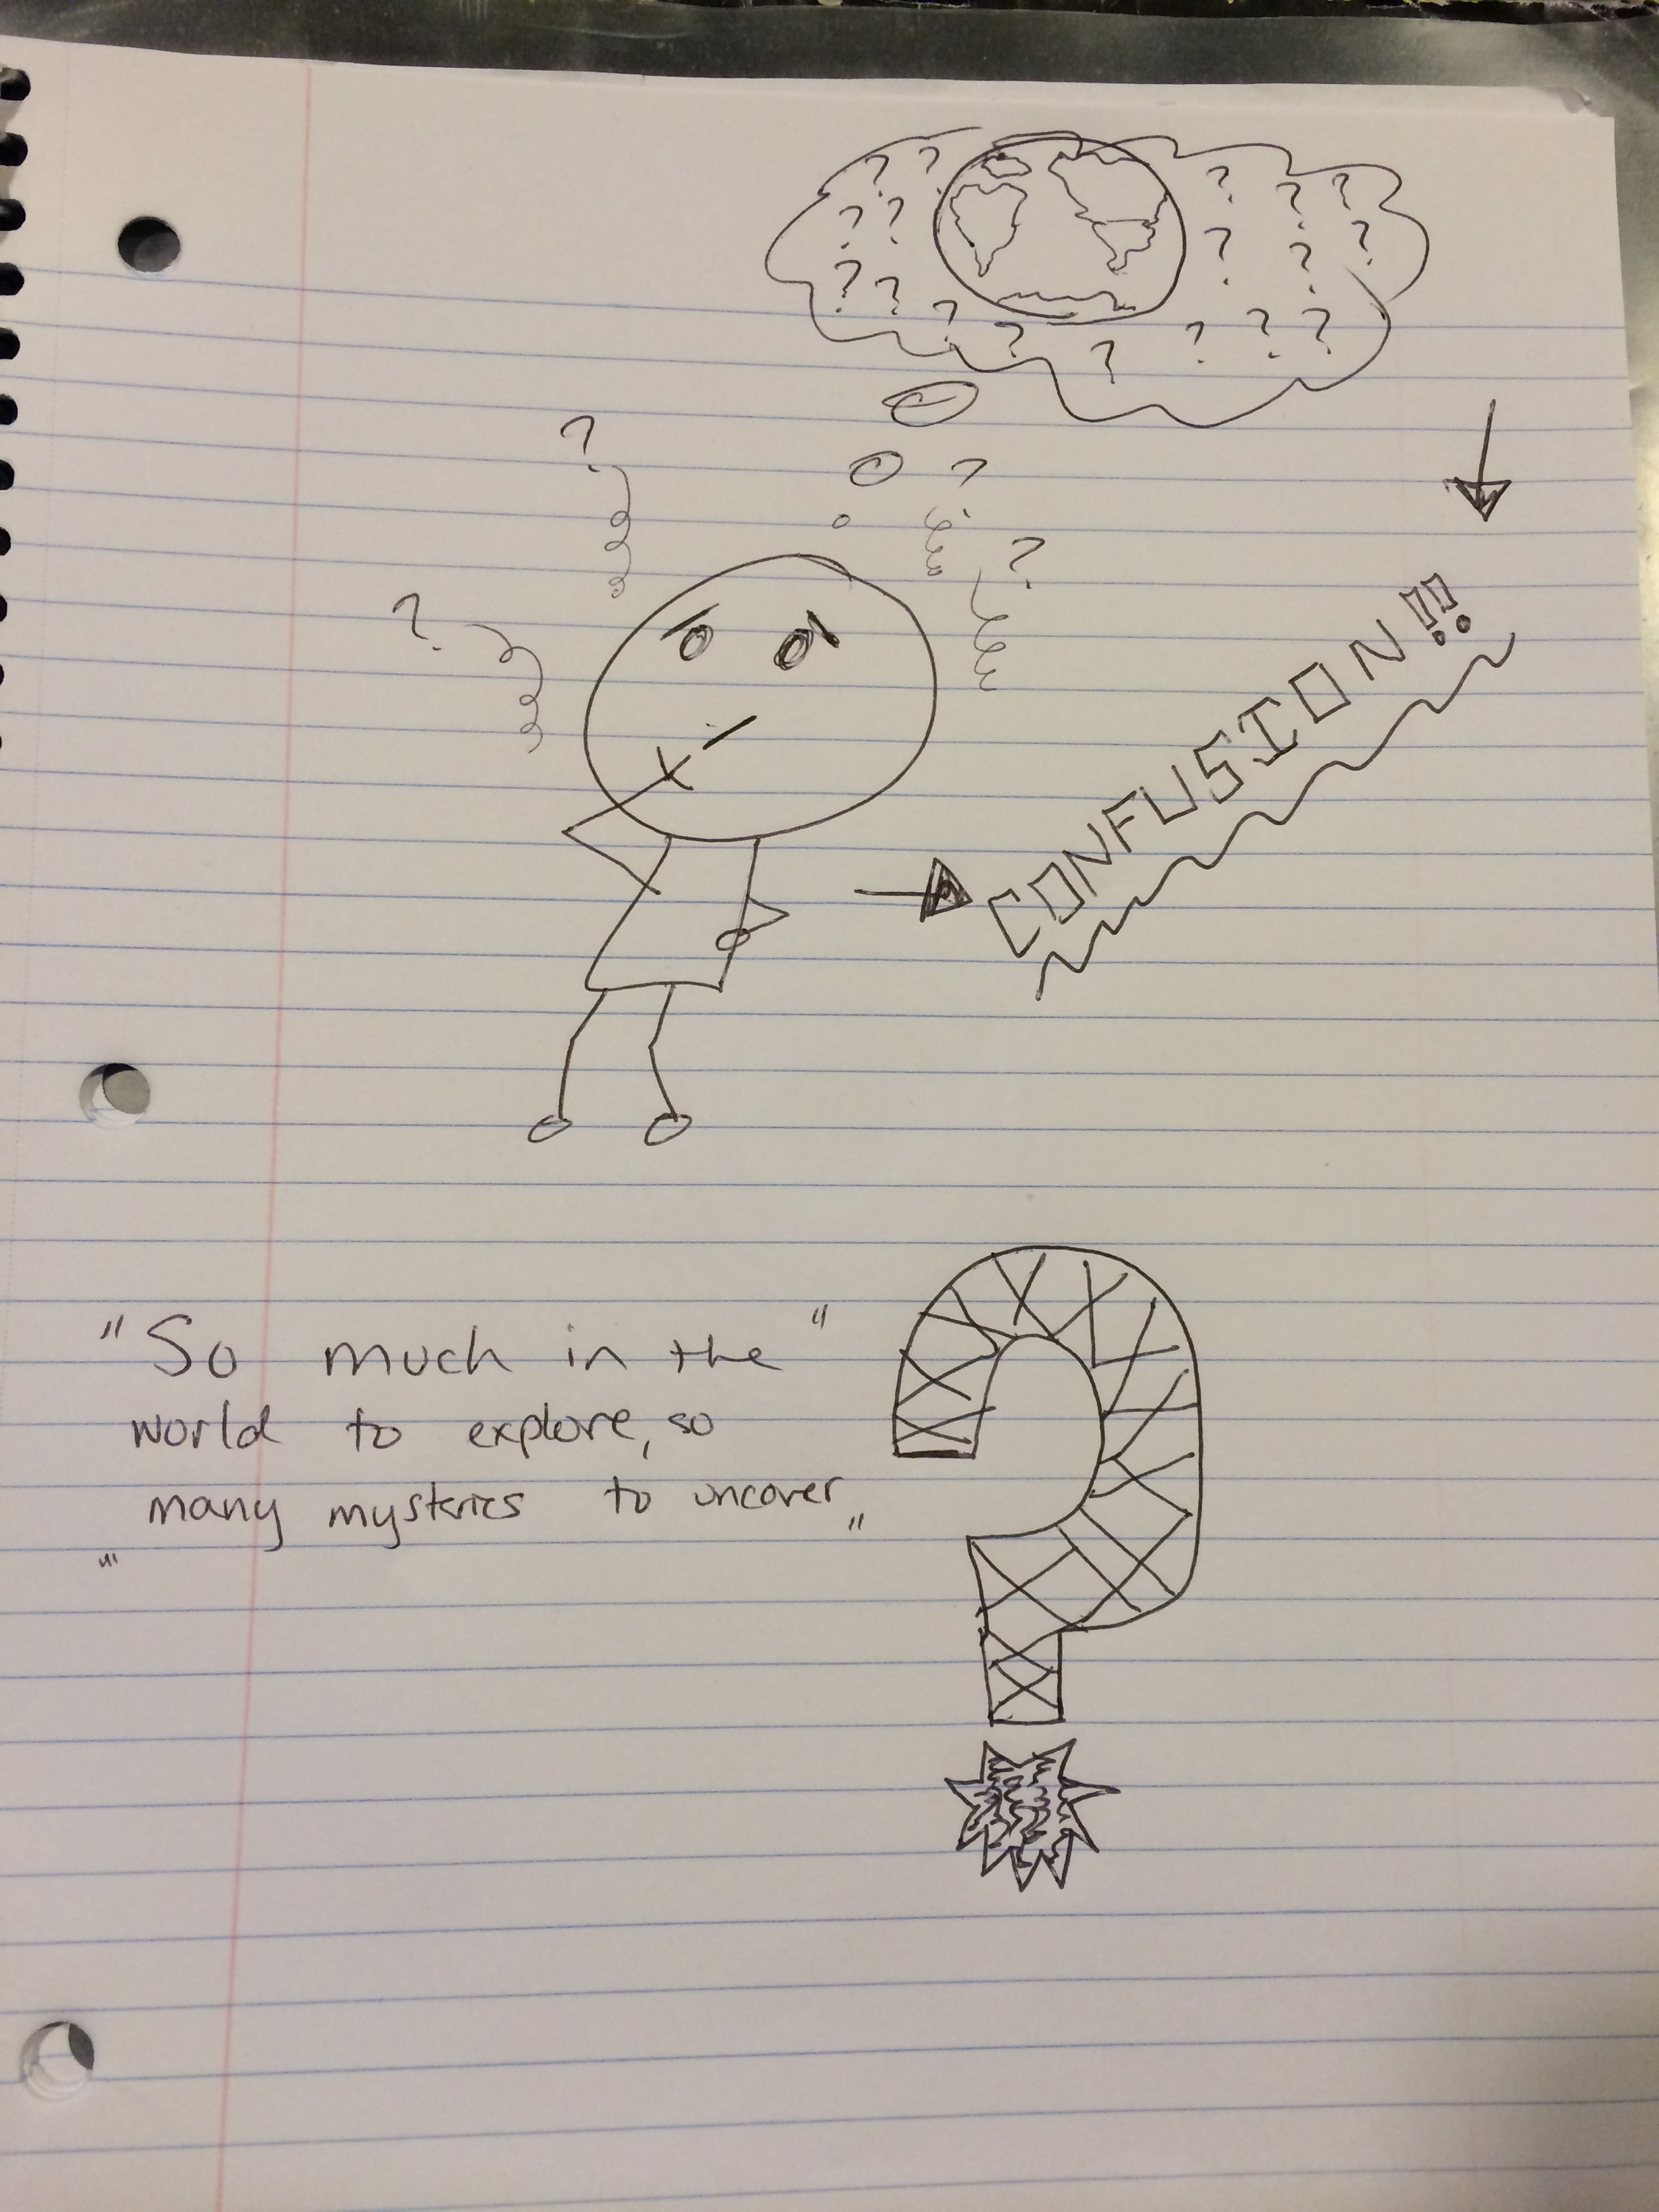 CONFUSION!!
"So much in the"
world to explore, so
many mysteries to uncover"
"